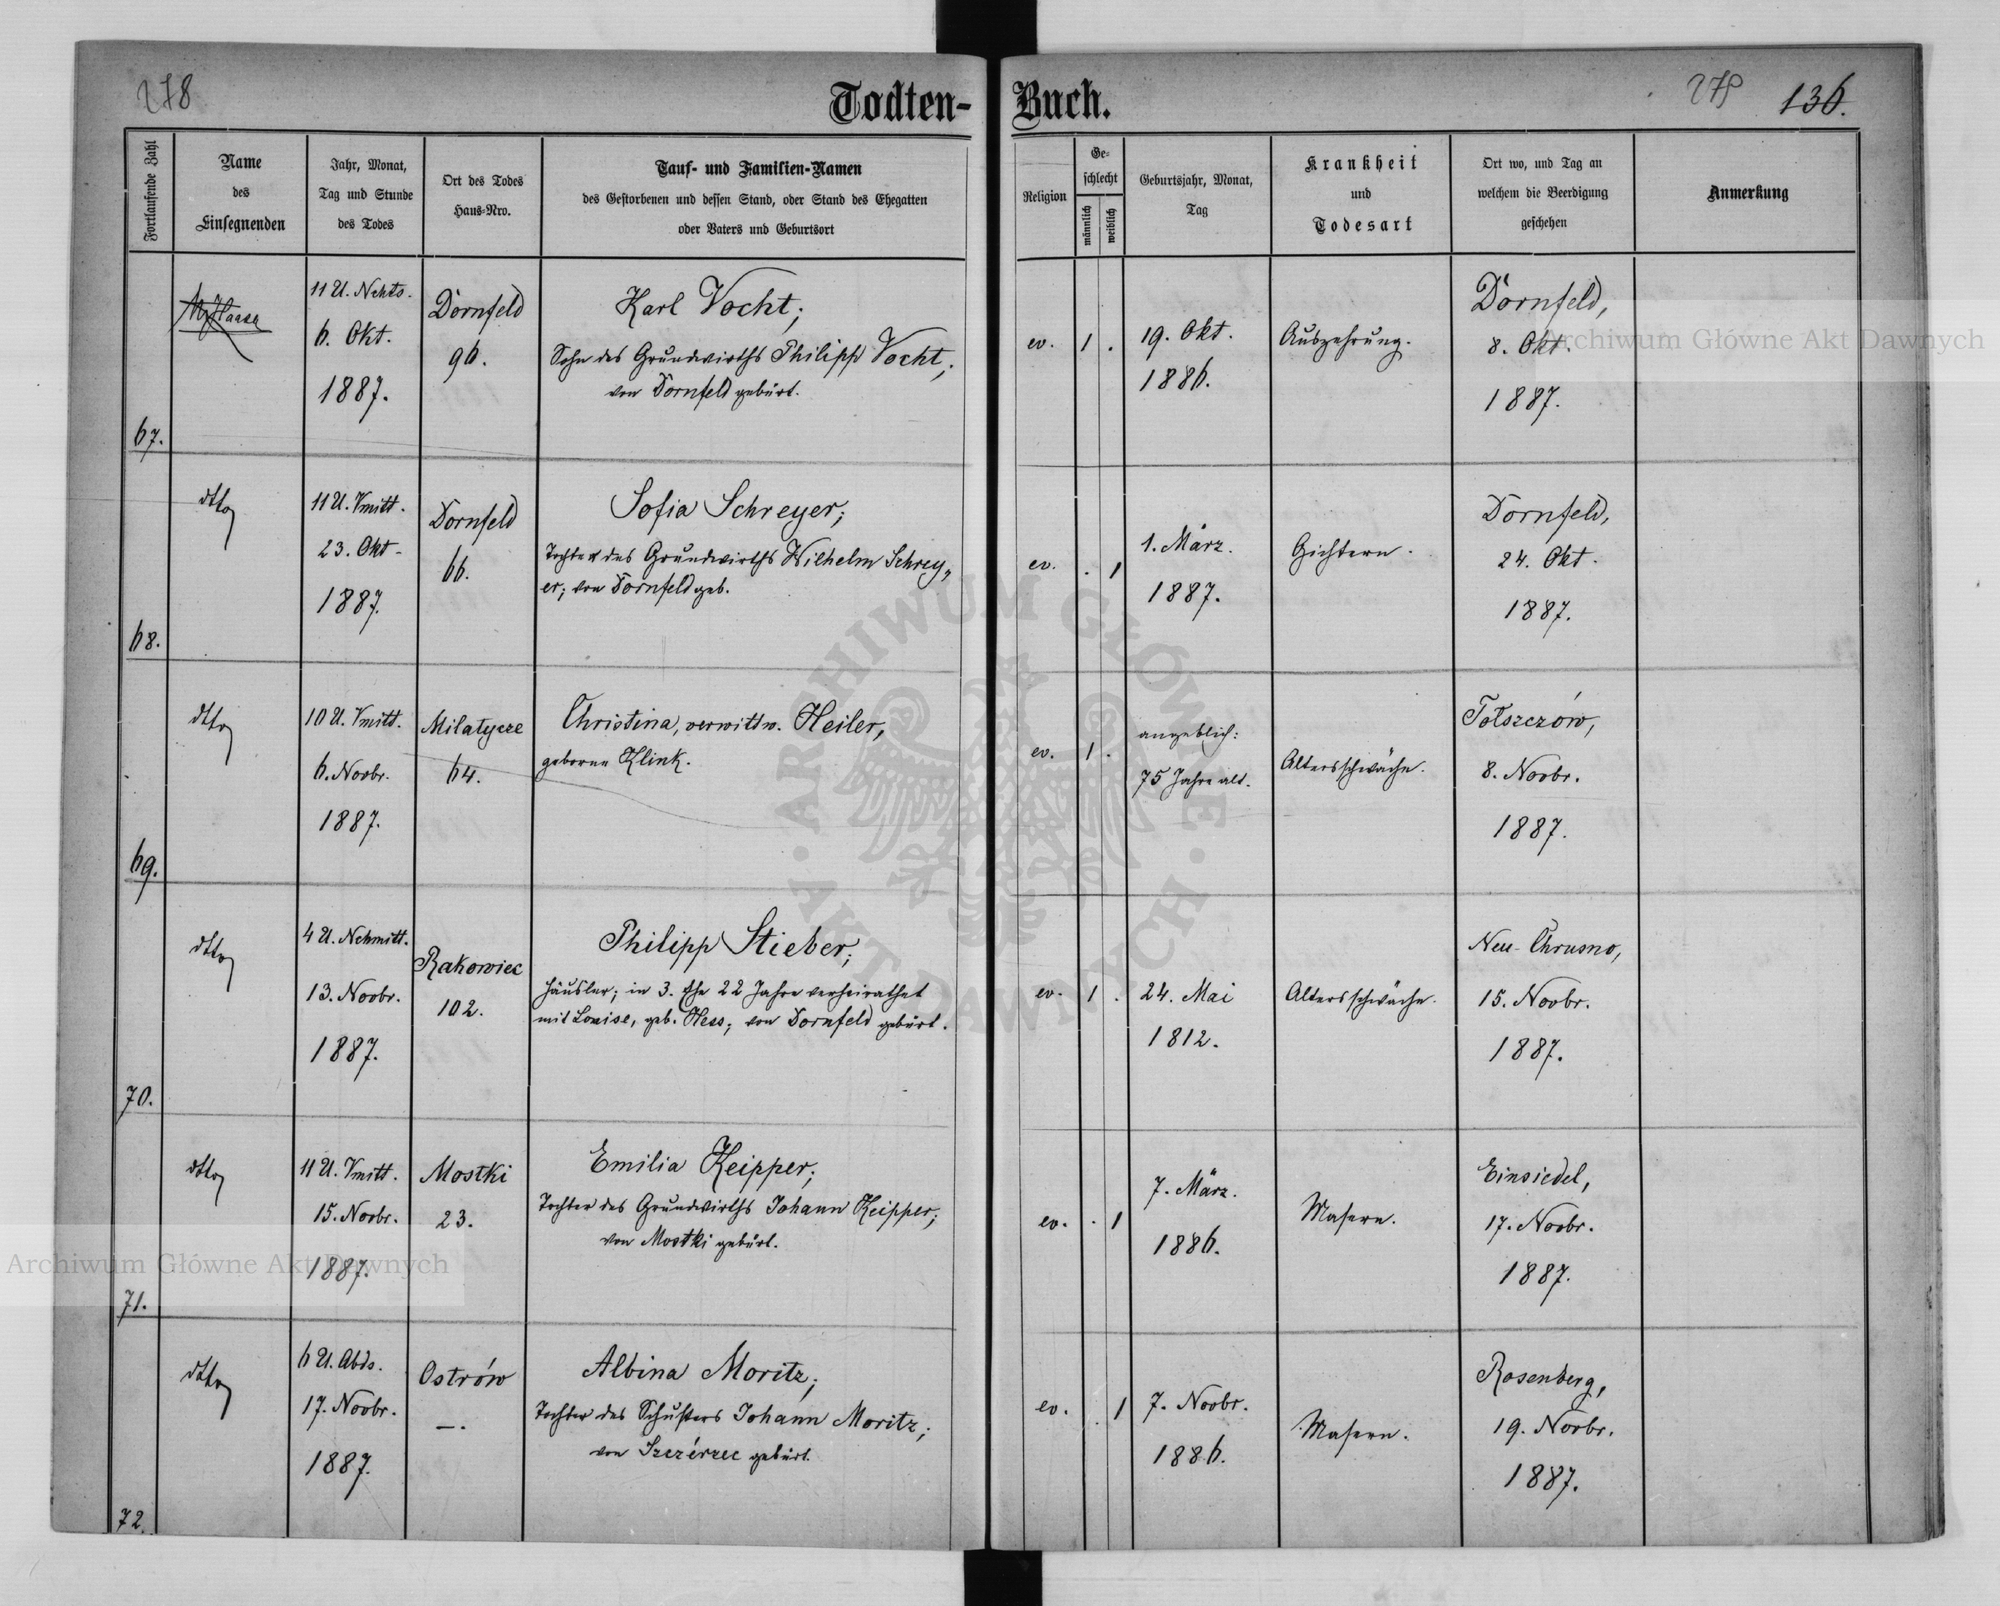 278
Todten-
Buch.
279
136.
Fortlaufende Zahl
Name
des
Einsegnenden
Jahr, Monat,
Tag und Stunde
des Todes
Ort des Todes
Haus-Nro.
Tauf- und Familien-Namen
des Gestorbenen und dessen Stand, oder Stand des Ehegatten
oder Vaters und Geburtsort
Religion
Ge-
schlecht
männlich
weiblich
Geburtsjahr, Monat,
Tag
Krankheit
und
Todesart
Ort wo, und Tag an
welchem die Beerdigung
geschehen
Anmerkung
67.
Haase
11 U. Nchts.
6. Okt.
1887.
Dornfeld
96.
Karl Vocht;
Sohn des Grundwirths Philipp Vocht;
von Dornfeld gebürt.
ev.
1 .
19. Okt.
1886.
Auszehrung.
Dornfeld,
8. Okt.
1887.
68.
dtto
11 U. Vmitt.
23. Okt.
1887.
Dornfeld
66.
Sofia Schreyer;
Tochter des Grundwirths Wilhelm Schrey„
er; von Dornfeld geb.
ev.
. 1
1. März.
1887.
Gichtern.
Dornfeld,
24. Okt.
1887.
69.
dtto
10 U. Vmitt.
6. Novbr.
1887.
Milatycze
64.
Christina, verwittw. Heiler,
geborne Klink.
ev.
1 .
angeblich:
75 Jahre alt.
Altersschwäche.
Tołszczów,
8. Novbr.
1887.
70.
dtto
4 U. Nchmitt.
13. Novbr.
1887.
Rakowiec
102.
Philipp Stieber;
Häusler; in 3. Ehe 22 Jahre verheirathet
mit Louise, geb. Hess; von Dornfeld gebürt.
ev.
1 .
24. Mai
1812.
Altersschwäche.
Neu-Chrusno,
15. Novbr.
1887.
71.
dtto
11 U. Vmitt.
15. Novbr.
1887.
Mostki
23.
Emilia Keipper;
Tochter des Grundwirths Johann Keipper;
von Mostki gebürt.
ev.
. 1
7. März.
1886.
Masern.
Einsiedel,
17. Novbr.
1887.
72.
dtto
6 U. Abds.
17. Novbr.
1887.
Ostrów
—.
Albina Moritz;
Tochter des Schusters Johann Moritz;
von Szczérzec gebürt.
ev.
. 1
7. Novbr.
1886.
Masern.
Rosenberg,
19. Novbr.
1887.
Archiwum Główne Akt Dawnych
Archiwum Główne Akt Dawnych
ARCHIWUM GŁÓWNE · AKT DAWNYCH ·